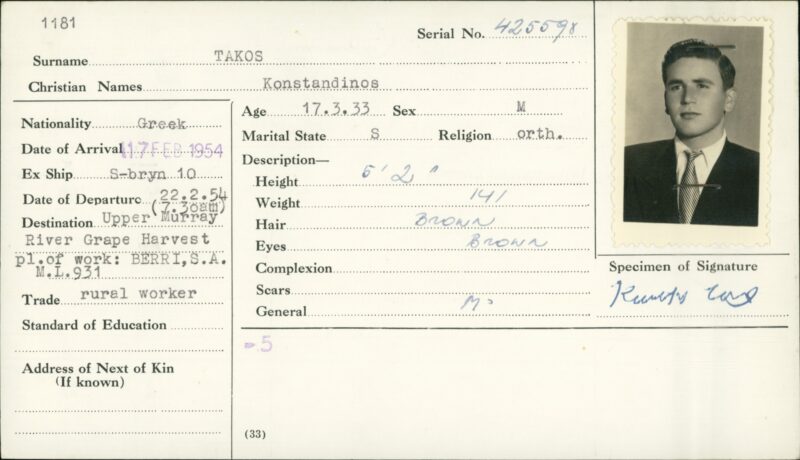 1181
Serial No. 425598
Surname TAKOS
Christian Names Konstandinos
Nationality Greek
Date of Arrival 17 FEB 1954
Ex Ship S-bryn 10
Date of Departure 22.2.54
(7.30am)
Destination Upper Murray
River Grape Harvest
pl.of work: BERRI,S.A.
M.L.931
Trade rural worker
Standard of Education
Address of Next of Kin
(If known)
Age 17.3.33 Sex M
Marital State S Religion orth.
Description—
Height 5' 2"
Weight 141
Hair Brown
Eyes Brown
Complexion
Scars
General
5
(33)
Specimen of Signature